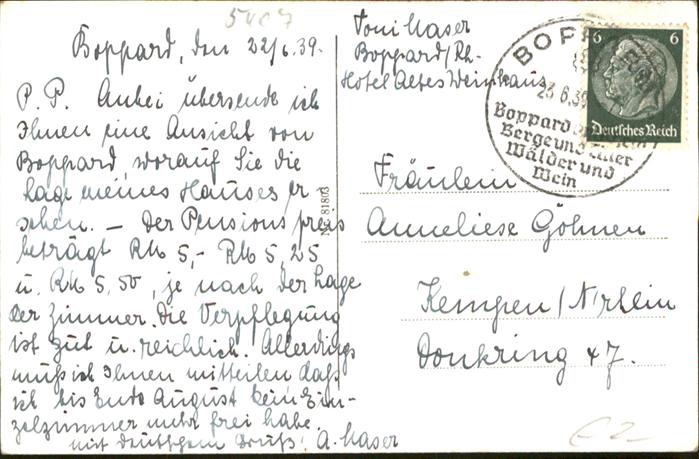 5407
Boppard, den 22/6.39.
P.P. Anbei übersende ich
Ihnen eine Ansicht von
Boppard, worauf Sie die
Lage meines Hauses er
sehen. — Der Pensionspreis
beträgt RM 5,- RM 5,25
u. RM 5,50, je nach der Lage
der Zimmer. Die Verpflegung
ist gut u. reichlich. Allerdings
muß ich Ihnen mitteilen daß
ich bis Ende August kein Ein-
zelzimmer mehr frei habe.
mit deutschem Gruß! A. Maser
Nr. 81803
Toni Maser
Boppard/Rh.
Hotel Altes Weinhaus
BOPPARD
23.6.39
Boppard
Berge und
Wälder und
Wein
6 6
Deutsches Reich
Fräulein
Anneliese Göhnen
Kempen/N/rhein
Donkring 47.